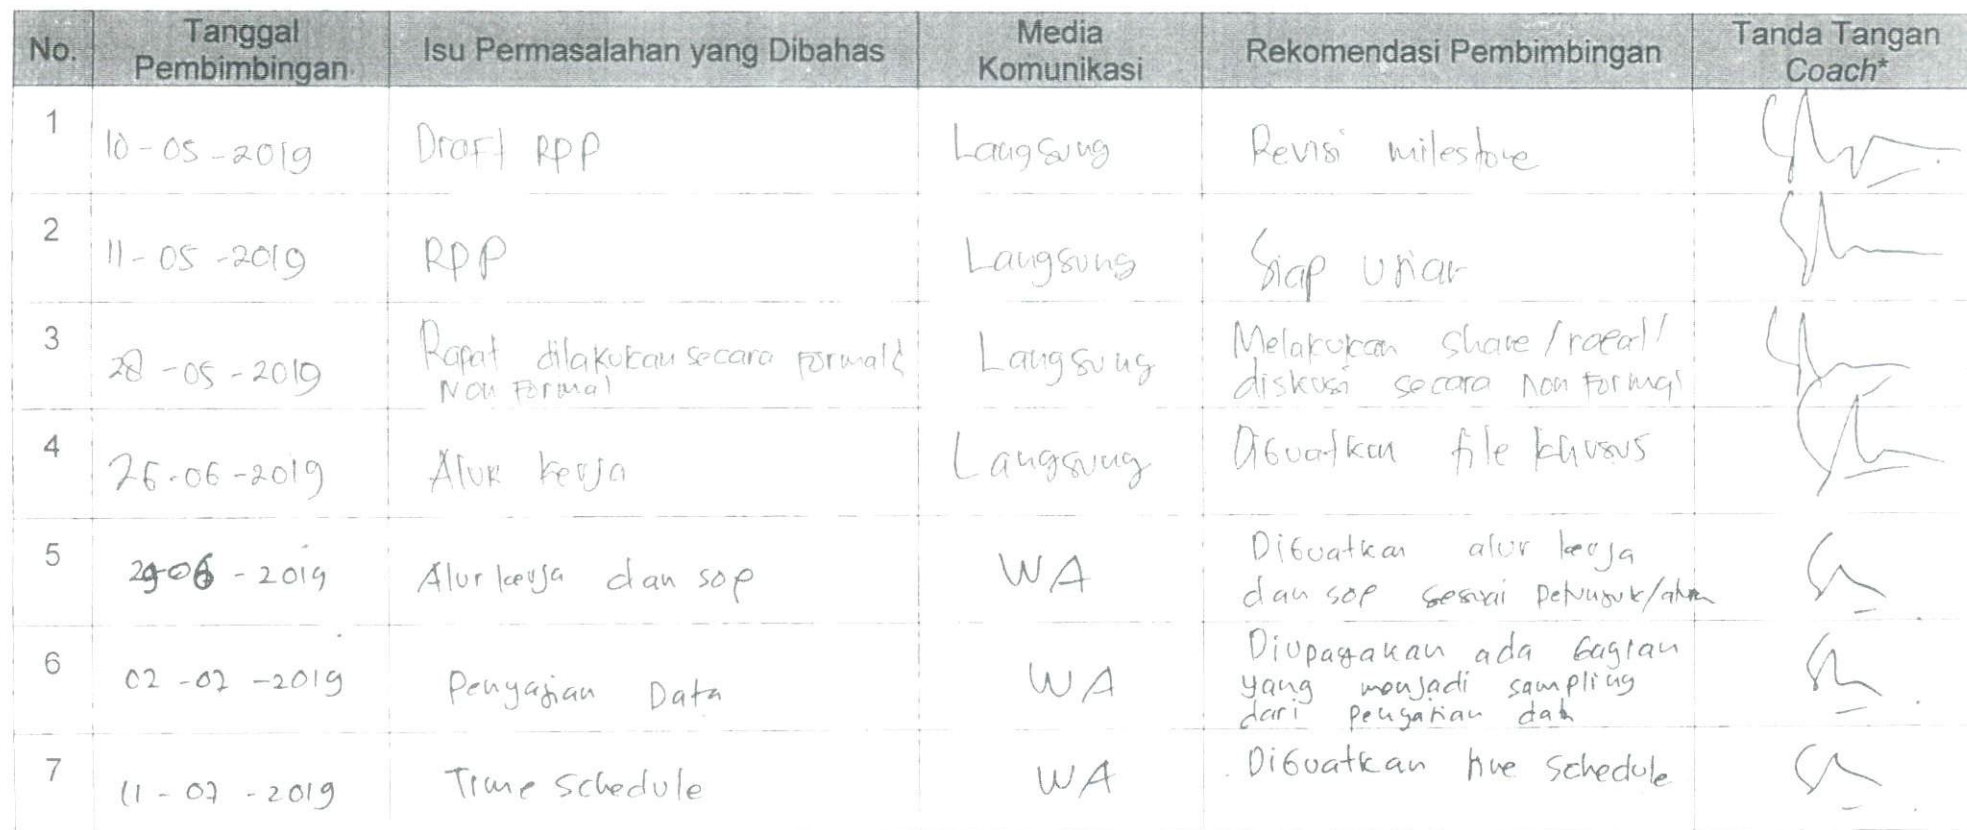 No. Tanggal Pembimbingan Isu Permasalahan yang Dibahas Media Komunikasi Rekomendasi Pembimbingan Tanda Tangan Coach*
1 10-05-2019 Draft RPP Langsung Revisi milestone
2 11-05-2019 RPP Langsung Siap Ujian
3 28-05-2019 Rapat dilakukan secara Formal & Langsung Melakukan share/rapat/
Non Formal diskusi secara Non Formal
4 26-06-2019 Alur kerja Langsung Dibuatkan file khusus
5 29-06-2019 Alur kerja dan sop WA Dibuatkan alur kerja
dan sop sesuai Petunjuk/
6 02-07-2019 Penyajian Data WA Diupayakan ada bagian
yang menjadi sampling
dari penyajian data
7 11-07-2019 Time schedule WA Dibuatkan time schedule